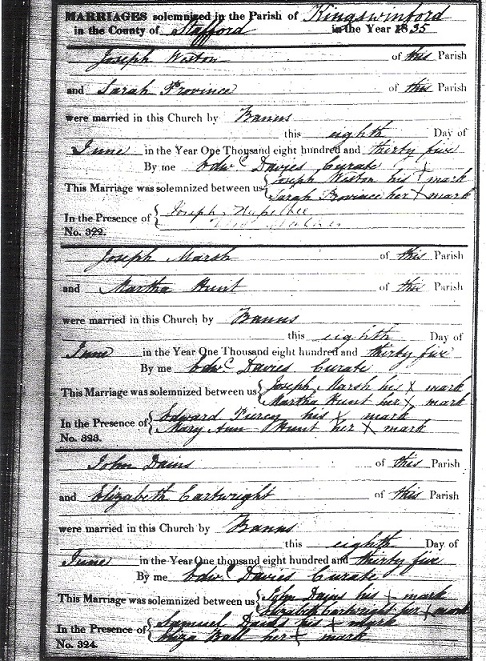 MARRIAGES solemnized in the Parish of Kingswinford
in the County of Stafford in the Year 1835
Joseph Weston of this Parish
and Sarah Province of this Parish
were married in this Church by Banns
this eighth Day of
June in the Year One Thousand eight hundred and thirty five
By me Edwd Davies Curate
This Marriage was solemnized between us { Joseph Weston his X mark
Sarah Province her X mark
In the Presence of { Joseph
No. 322.
Joseph Marsh of this Parish
and Martha Hunt of this Parish
were married in this Church by Banns
this eighth Day of
June in the Year One Thousand eight hundred and thirty five
By me Edwd Davies Curate
This Marriage was solemnized between us { Joseph Marsh his X mark
Martha Hunt her X mark
In the Presence of { Edward Piercy his X mark
Mary Ann Hunt her X mark
No. 323.
John Dains of this Parish
and Elizabeth Cartwright of this Parish
were married in this Church by Banns
this eighth Day of
June in the Year One thousand eight hundred and thirty five
By me Edwd Davies Curate
This Marriage was solemnized between us { John Dains his X mark
Elizabeth Cartwright her X mark
In the Presence of { Samuel Dains his X mark
Eliza Wall her X mark
No. 324.